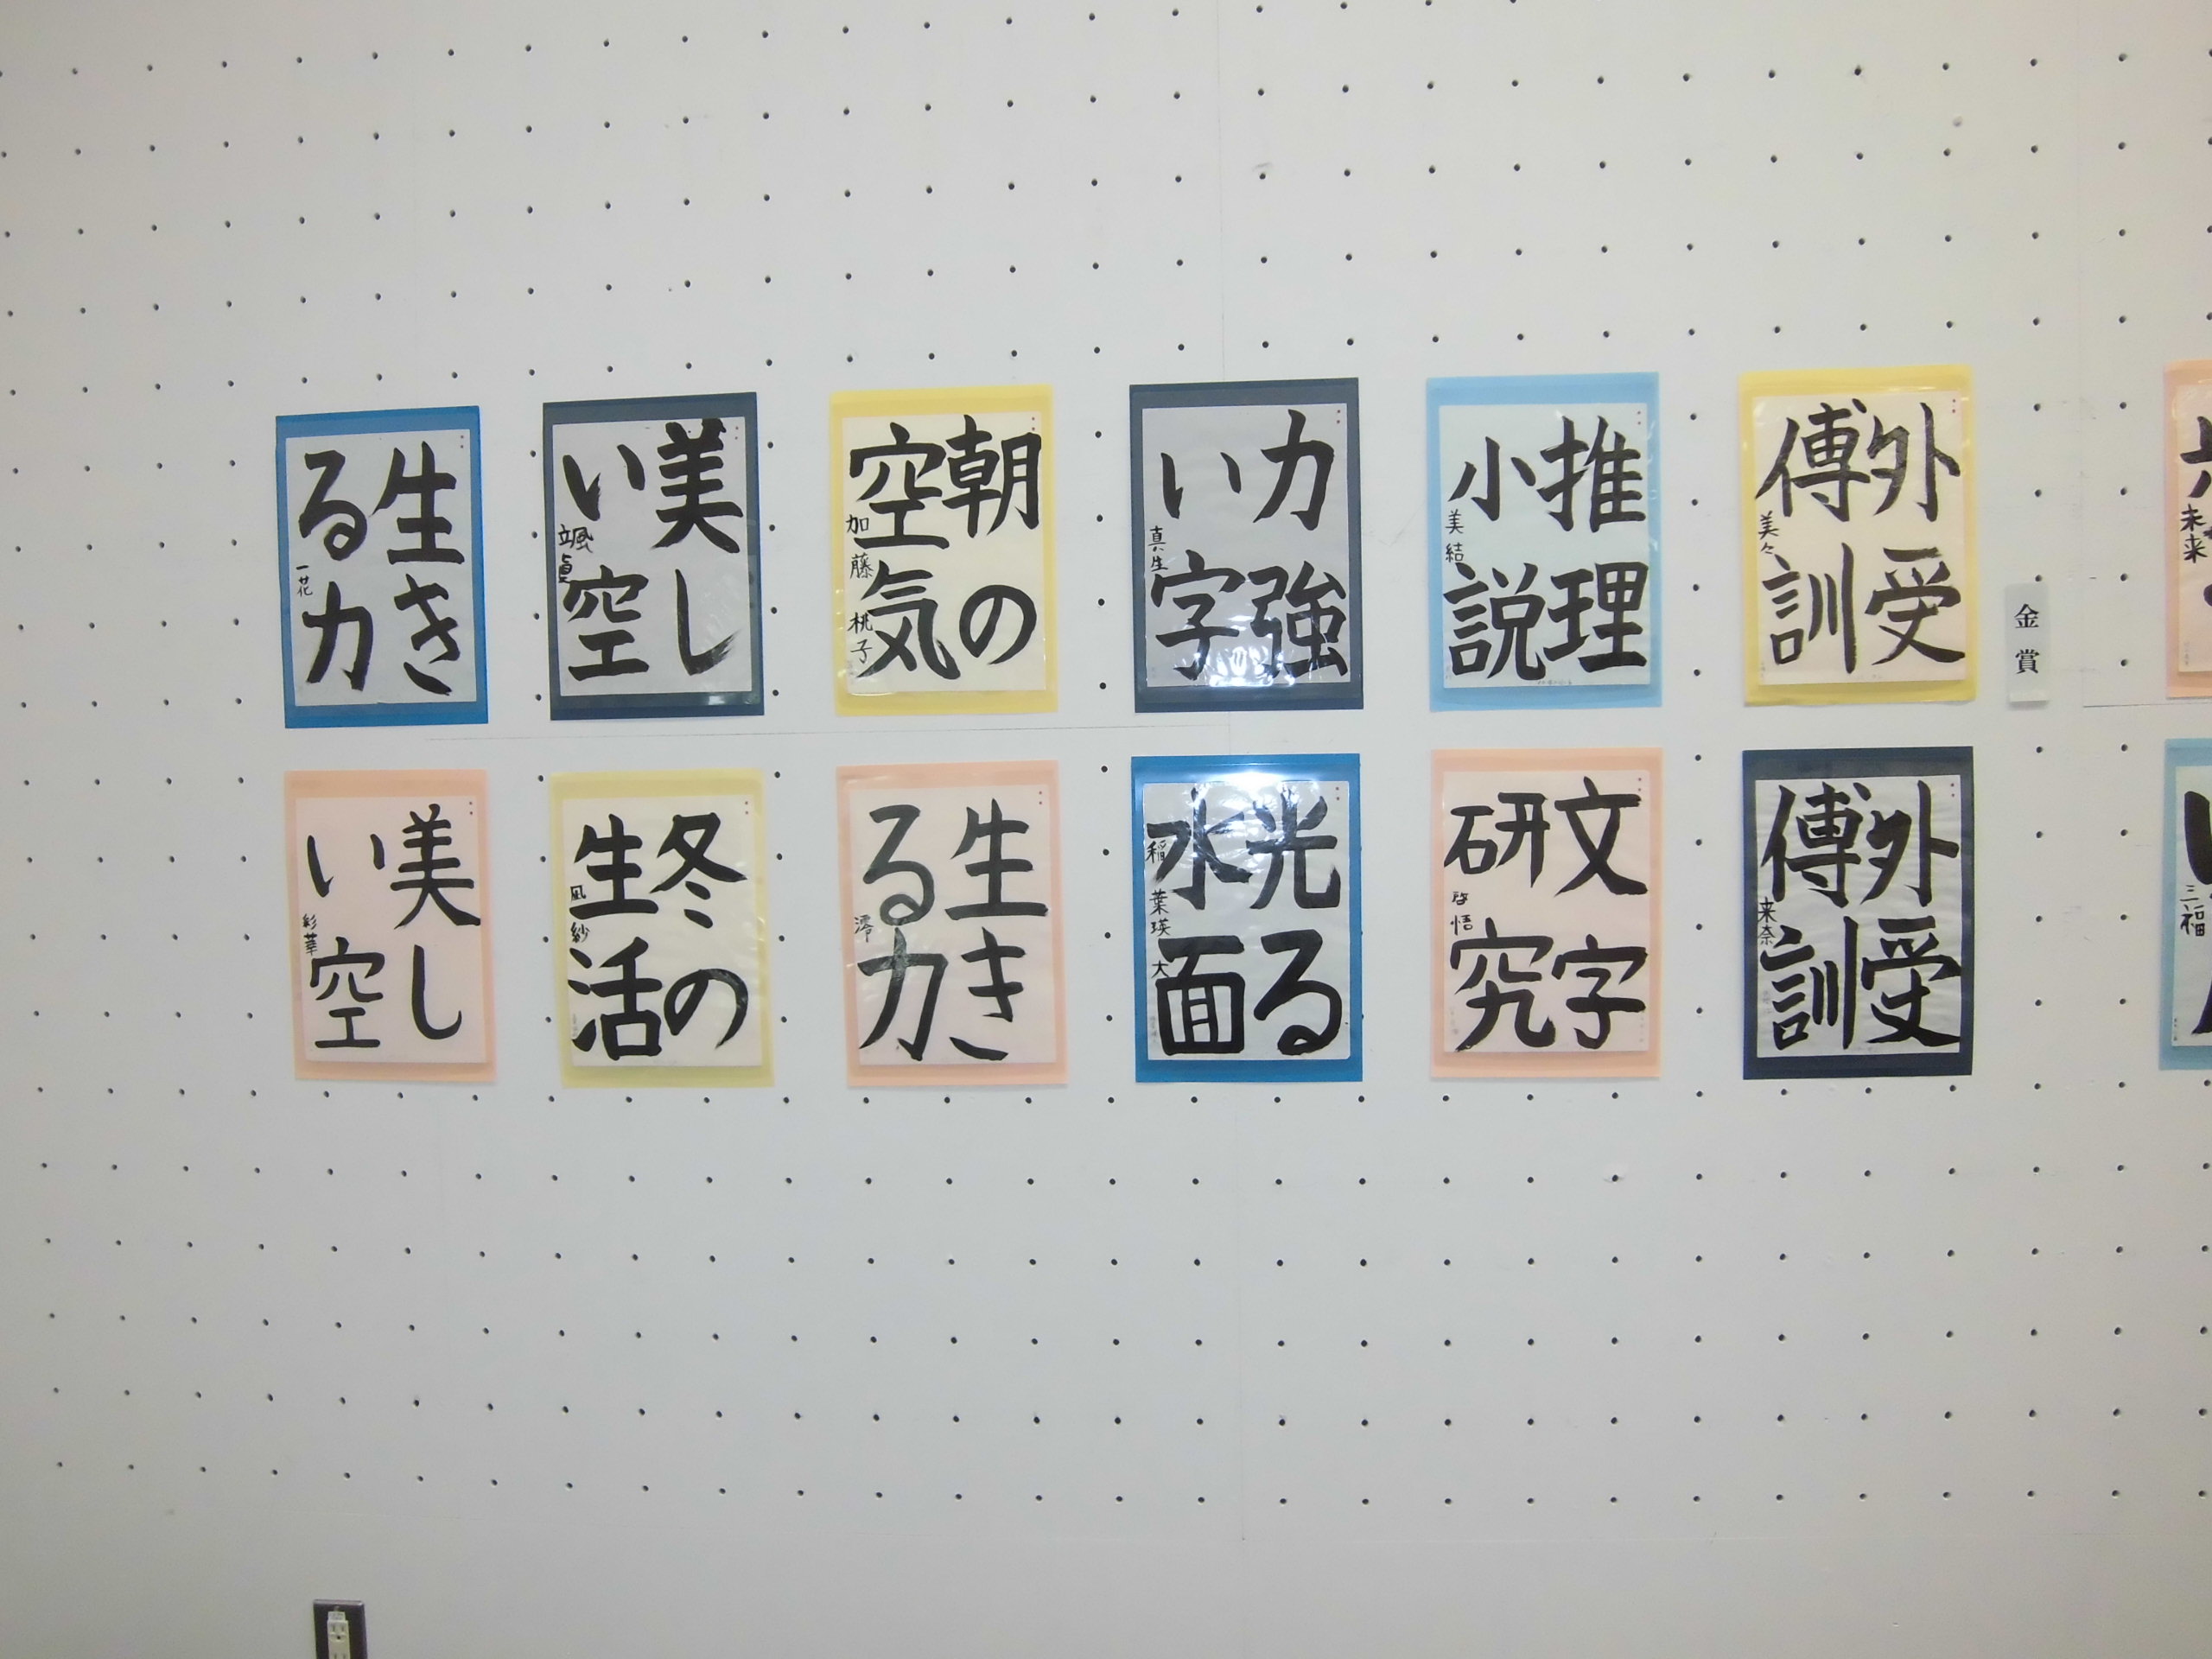 外受
傅訓
美々
推理
小説
美結
力強
い字
真生
朝の
空気
加藤桃子
美し
い空
颯真
生き
る力
一花
金賞
外受
傅訓
来奈
文字
研究
啓悟
光る
水面
稲葉瑛大
生き
る力
澪
冬の
生活
凪紗
美し
い空
彩華
未来
三福